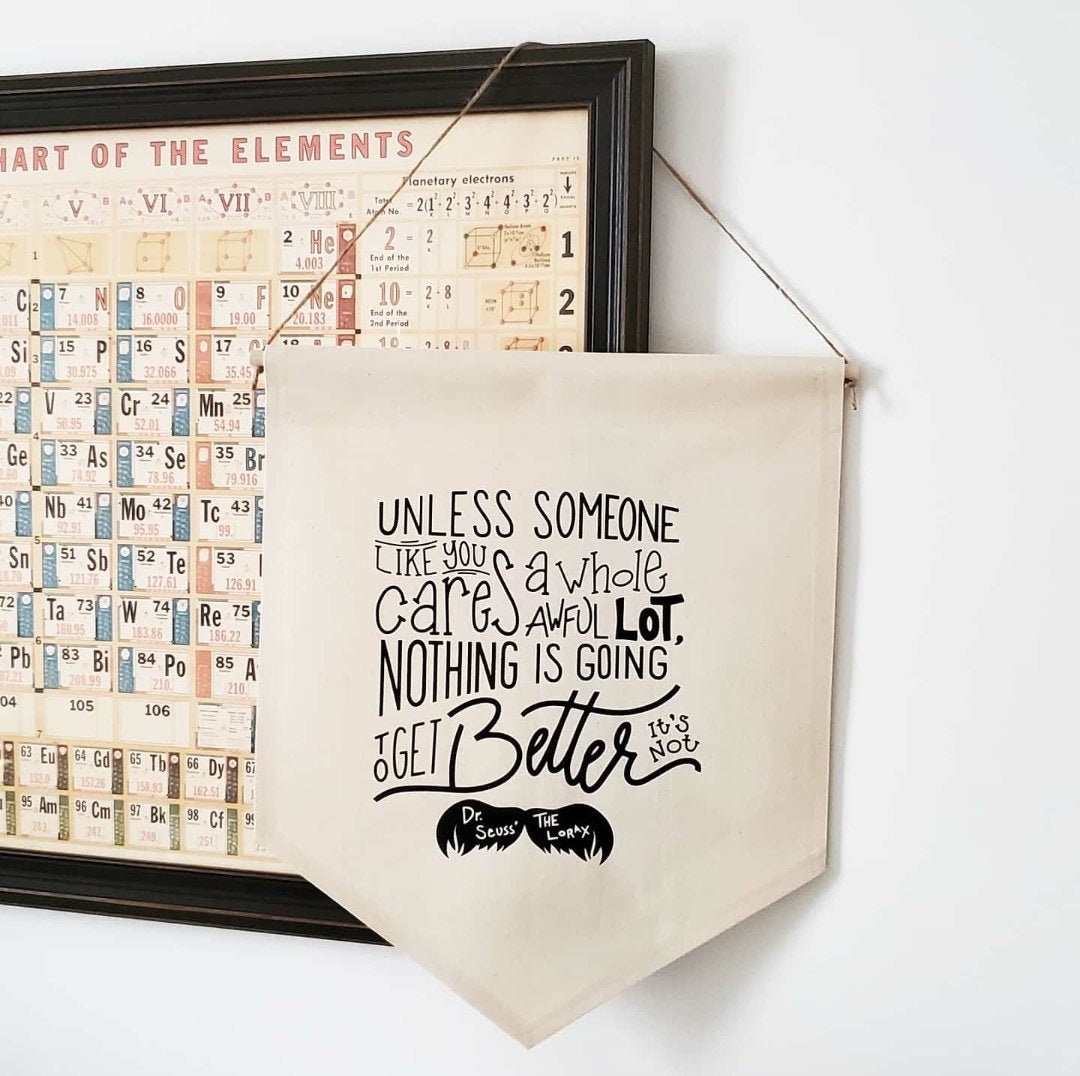 HART OF THE ELEMENTS
PART IV
Planetary electrons
V VI VII VIII
2 He 4.003
2 = 2
End of the
1st Period
1
7 N 8 O 9 F 10 Ne
14.008 16.0000 19.00 20.183
10 = 2 - 8
End of the
2nd Period
2
Si 15 P 16 S 17
30.975 32.066 35.45
V 23 Cr 24 Mn 25
50.95 52.01 54.94
Ge 33 As 34 Se 35 Br
74.92 78.96 79.916
Nb 41 Mo 42 Tc 43
92.91 95.95 99.
Sn 51 Sb 52 Te 53
121.76 127.61 126.91
Ta 73 W 74 Re 75
180.95 183.86 186.22
Pb 83 Bi 84 Po 85
208.99 210. 210.
04 105 106
63 Eu 64 Gd 65 Tb 66 Dy
152.0 157.26 158.93 162.51
95 Am 96 Cm 97 Bk 98 Cf 99
243. 247. 249. 251.
UNLESS SOMEONE
LIKE YOU
careS a whole
AWFUL LOT,
NOTHING IS GOING
TO GET Better It's Not
Dr. Seuss' THE LORAX